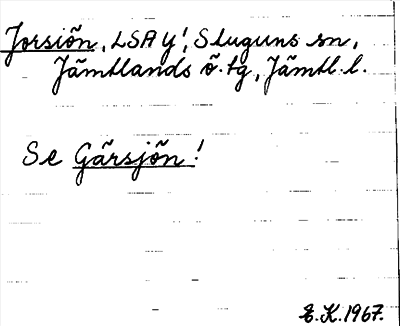 Jorsiõn, LSA y!, Sluguns sn,
Jämtlands ö.tg, Jämtl.l.
Se Gärsjön!
E.K.1967.